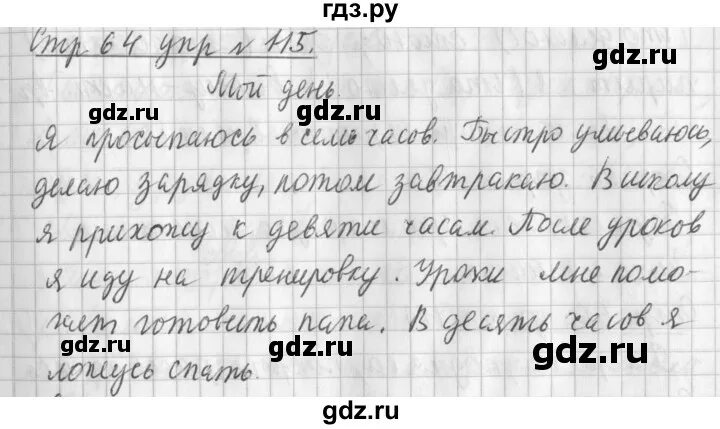 гдз.ру
Стр 64 упр №115.
gdz.ru gdz.ru
Мой день.
gdz.ru gdz.ru
Я просыпаюсь в семь часов. Быстро умываюсь,
делаю зарядку, потом завтракаю. В школу
gdz.ru gdz.ru
я прихожу к девяти часам. После уроков
я иду на тренировку. Уроки мне помо-
gdz.ru gdz.ru
гает готовить папа. В десять часов я
gdz.ru gdz.ru
ложусь спать.
gdz.ru